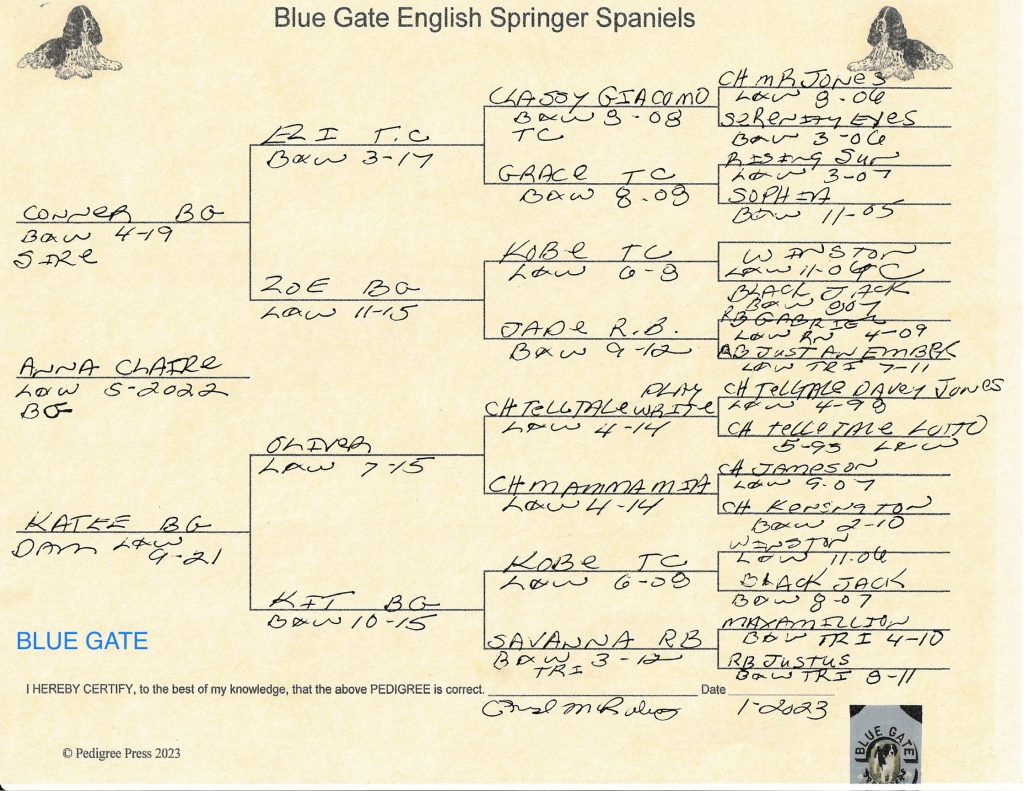 Blue Gate English Springer Spaniels
CONNER BG
B&W 4-19
SIRE
ANNA CLAIRE
L&W 5-2022
BG
KATEE BG
DAM L&W
9-21
BLUE GATE
ELI T.C
B&W 3-17
ZOE BG
L&W 11-15
OLIVER
L&W 7-15
KIT BG
B&W 10-15
CLASSY GIACOMO
B&W 8-08
TC
GRACE TC
B&W 8.08
KOBE TC
L&W 6-8
JADE R.B.
B&W 9-12
PLAY
CH TELLTALE WRITE
L&W 4-14
CH MAMMA MIA
L&W 4-14
KOBE TC
L&W 6-08
SAVANNA RB
B&W 3-12
TRI
CH MR JONES
L&W 8-06
SERENITY EYES
B&W 3-06
RISING SUN
L&W 3-07
SOPHIA
B&W 11-05
WINSTON
L&W 11-06 TC
BLACK JACK
B&W 8-07
RB GABRIEL
L&W RN 4-09
RB JUST AN EMBER
L&W TRI 7-11
CH TELLTALE DAVEY JONES
L&W 4-98
CH TELLETALE LOTTO
5-93 L&W
CH JAMESON
L&W 9-07
CH KENSNGTON
B&W 2-10
WINSTON
L&W 11.06
BLACK JACK
B&W 8-07
MAXAMILLION
B&W TRI 4-10
RB JUSTUS
B&W TRI 8-11
I HEREBY CERTIFY, to the best of my knowledge, that the above PEDIGREE is correct. Date
1-2023
© Pedigree Press 2023
BLUE GATE